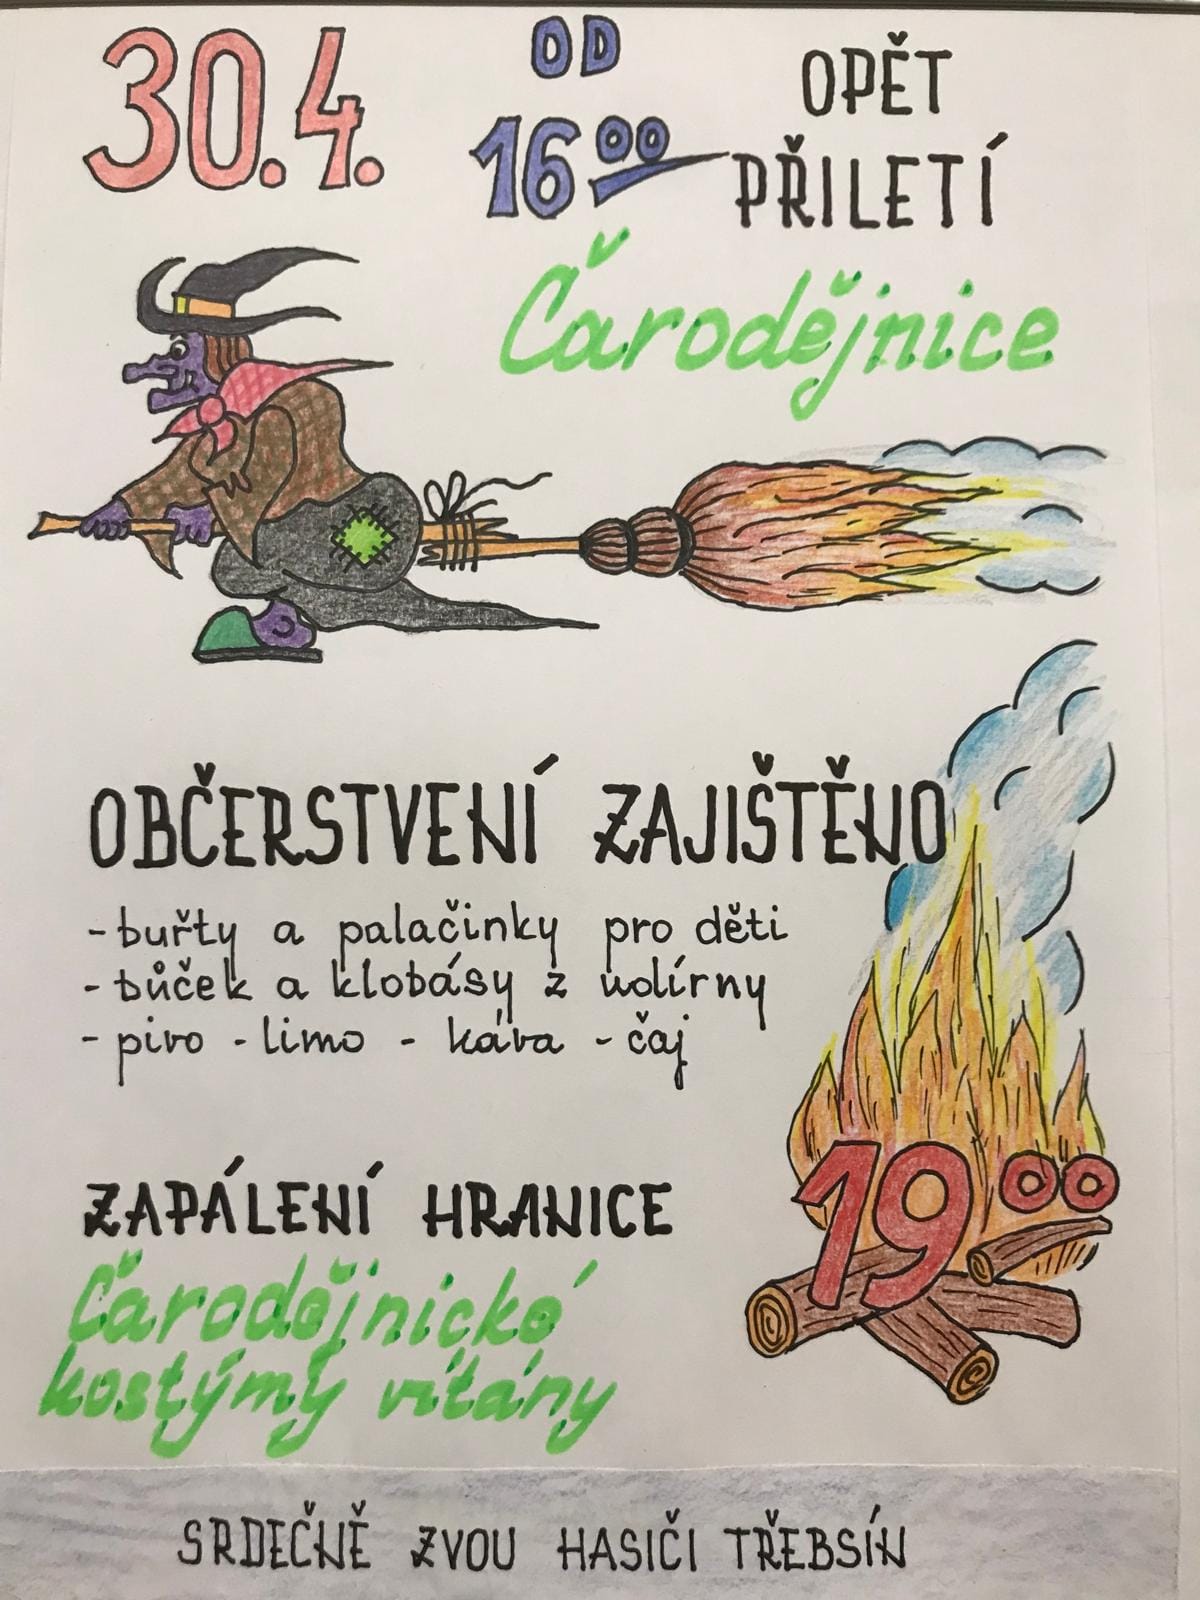 30.4.
OD
16⁰⁰
OPĚT
PŘILETÍ
Čarodějnice
OBČERSTVENÍ ZAJIŠTĚNO
- buřty a palačinky pro děti
- bůček a klobásy z udírny
- pivo - limo - káva - čaj
19⁰⁰
ZAPÁLENÍ HRANICE
Čarodějnické
kostýmy vítány
SRDEČNĚ ZVOU HASIČI TŘEBSÍN